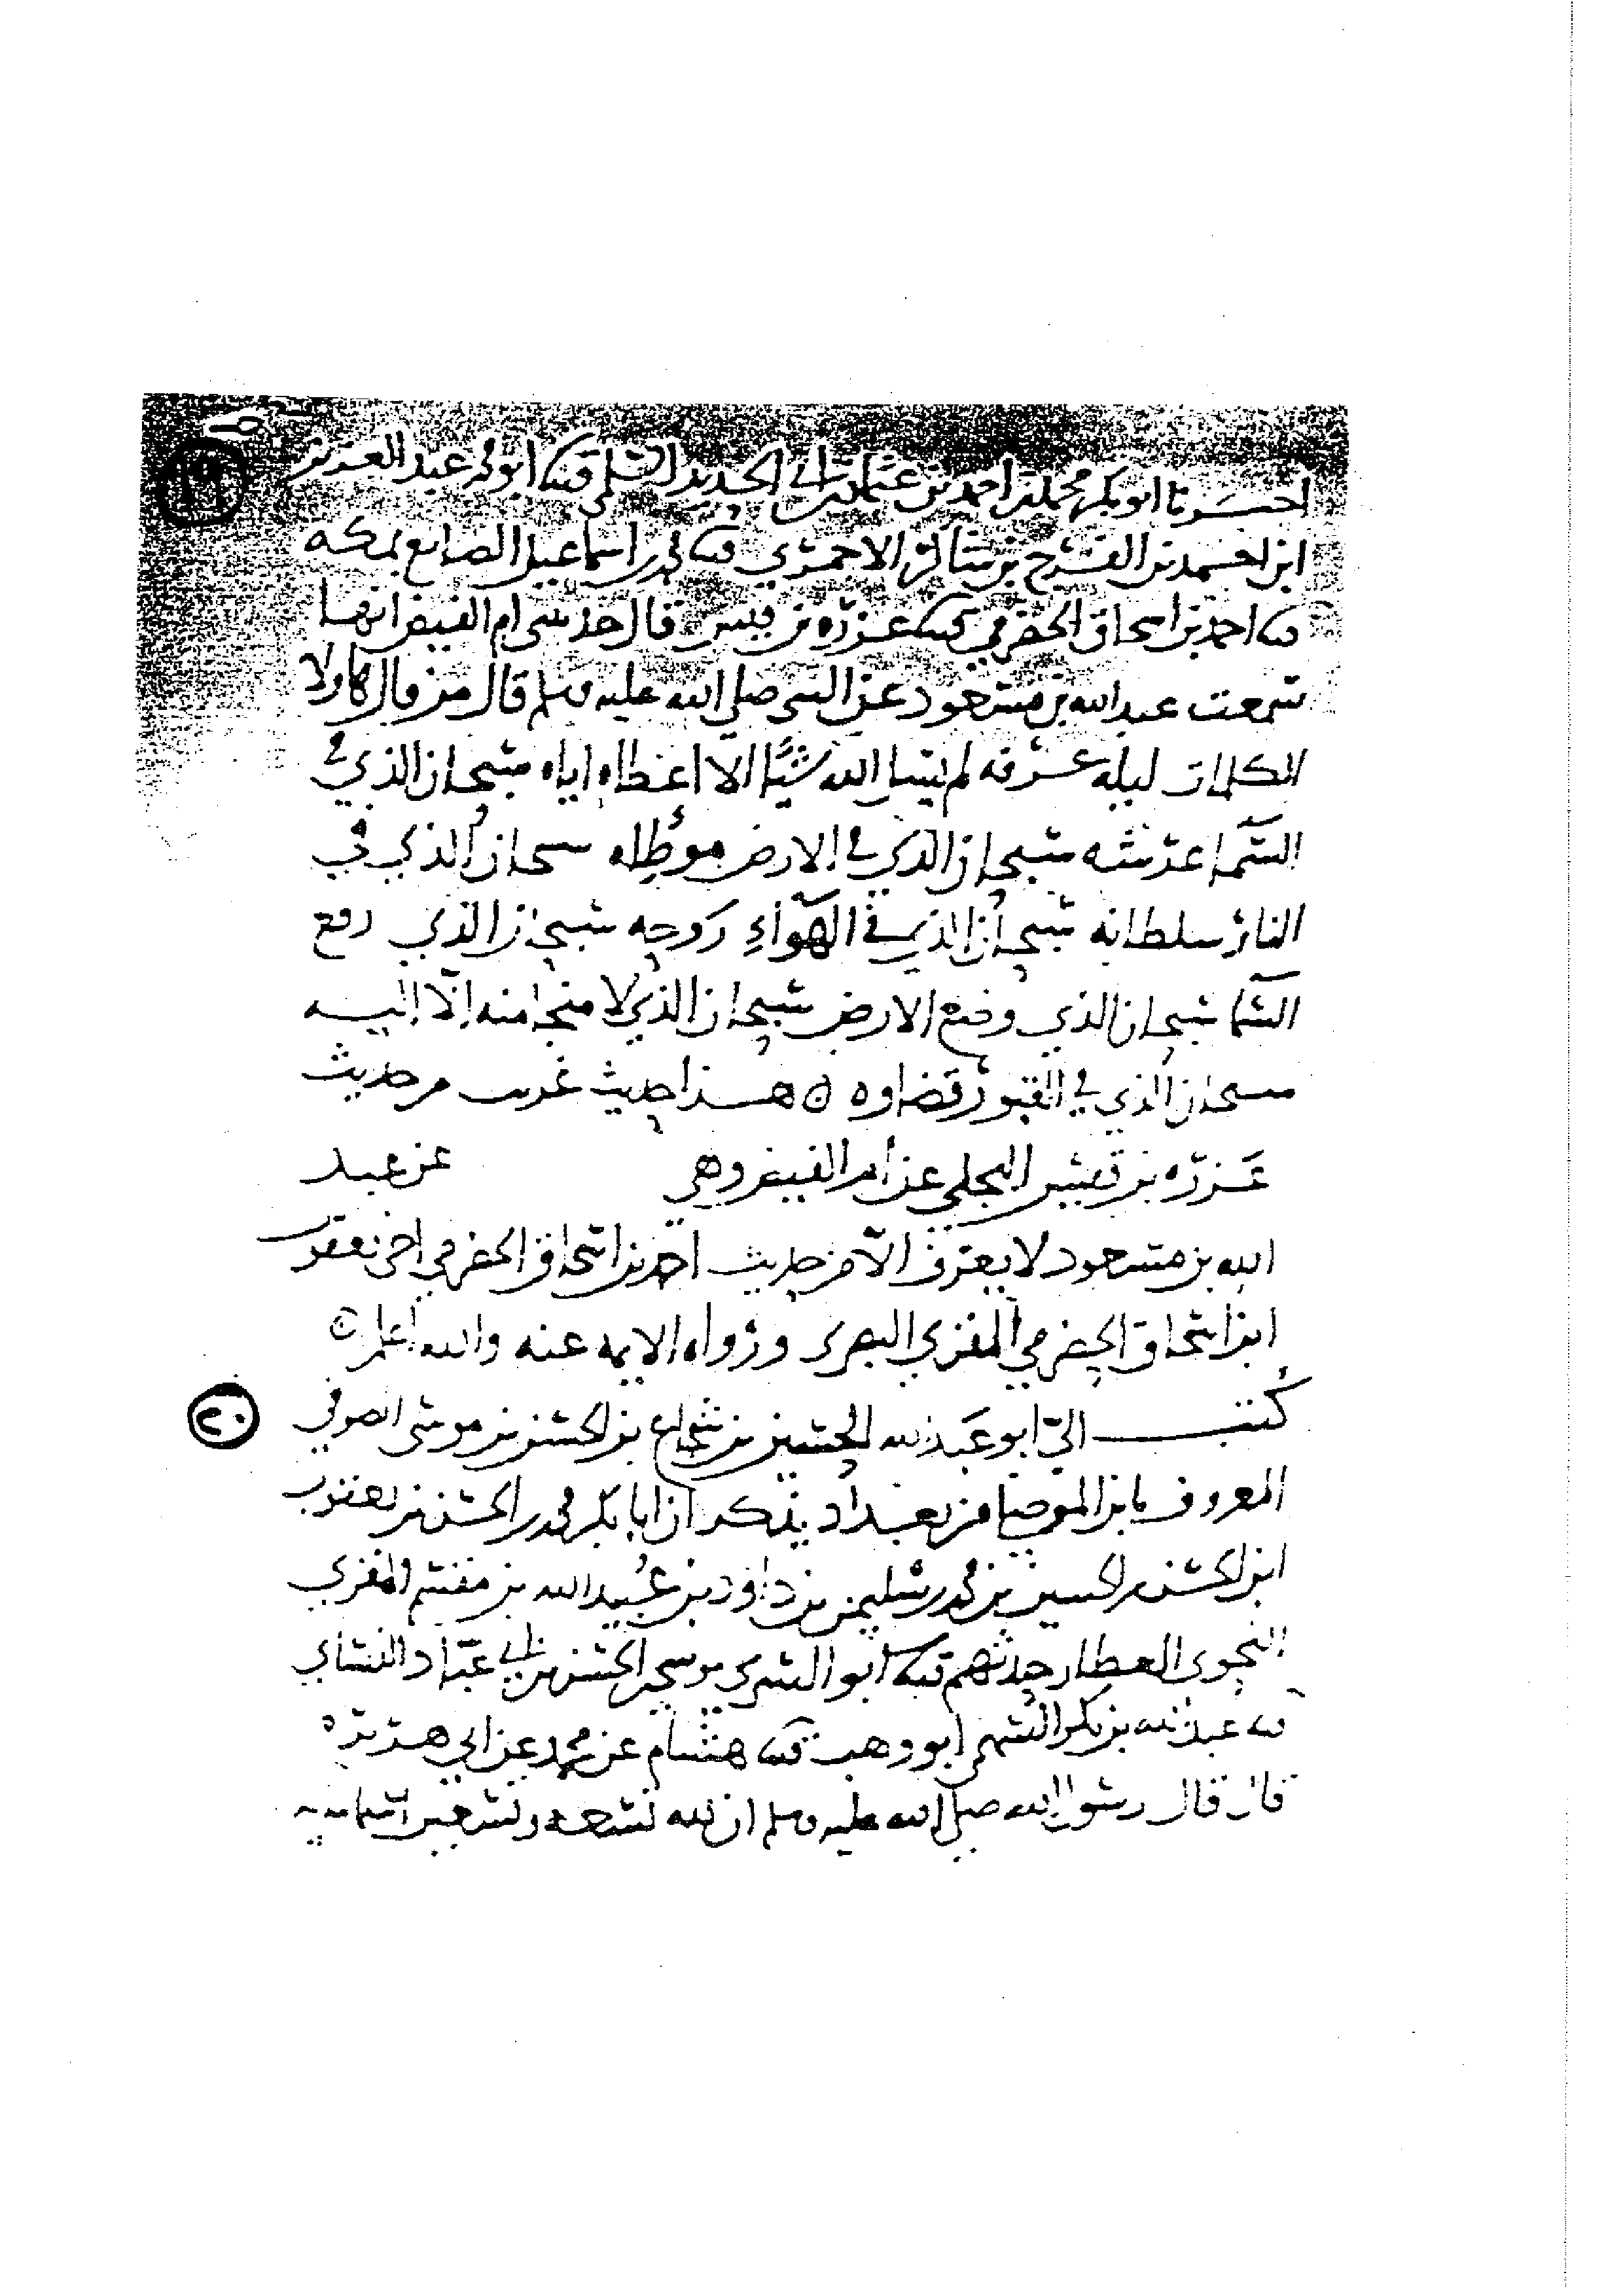 اخبرنا ابو بكر محمد بن احمد بن عثمن بن ابي الحديد السلمي ثنا ابو محمد عبد العزيز
ابن احمد بن الفرج بن شاكر الاحمري ثنا محمد بن اسماعيل الصايغ بمكه
ثنا احمد بن اسحاق الحضرمي ثنا عزره بن قيس قال حدثتني ام الفيض انها
سمعت عبد الله بن مسعود عن النبي صلى الله عليه وسلم قال من قال هاولا
الكلمات ليله عرفه لم يسل الله شيًا الا اعطاه اياه سبحان الذي في
السّما عرشه سبحان الذي في الارض موطِئه سبحان الذي في
النار سلطانه سبحان الذي في الهوآءِ روحه سبحان الذي رفع
السّما سبحان الذي وضع الارض سبحان الذي لا منجا منه الّا اليه
سبحان الذي في القبور قضاوه ن هذا حديث غريب من حديث
عَزرَه بن قيس البجلي عن ام الفيض وهي عن عبد
الله بن مسعود لا يعرف الّا من حديث احمد بن اسحاق الحضرمي اخي يعقوب
ابن اسحاق الحضرمي المقري البصري ورواه الايمه عنه والله اعلم ن
١٩
كتب اليّ ابو عَبد الله الحسين بن شجاع بن الحسن بن موسى الصوفي
٢٠
المعروف بابن الموصلي من بغداد يذكر ان ابا بكر محمد بن الحسن بن يعقوب
ابن الحسن بن الحسين بن محمد بن سليمن بن داود بن عُبيد الله بن مقسم المقري
النحوي العطار حدثهم ثنا ابو السري موسى بن الحسن بن ابي عبّاد النسّاي
ثنا عبد الله بن بكر السهمي ابو وهب ثنا هشام عن محمد عن ابي هريره
قال قال رسول الله صلى الله عليه وسلم ان لله تسعه وتسعين اسما مايه